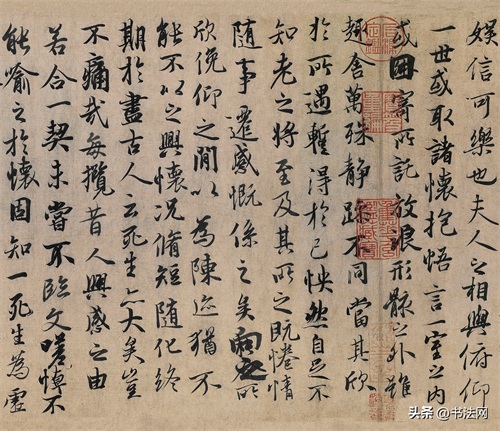 娛信可樂也夫人之相與俯仰
一世或取諸懷抱悟言一室之內
或因寄所託放浪形骸之外雖
趣舍萬殊静躁不同當其欣
於所遇蹔得於己怏然自足不
知老之將至及其所之既惓情
隨事遷感慨係之矣向之所
欣俛仰之間以為陳迹猶不
能不以之興懷況脩短隨化終
期於盡古人云死生亦大矣豈
不痛哉每攬昔人興感之由
若合一契未嘗不臨文嗟悼不
能喻之於懷固知一死生為虛
头条 @书法网